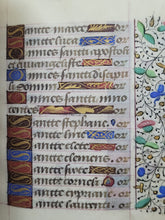 ancte marce or
ancte luca or
mnes sancti apostoli
et euangeliste or
mnes sancti discipu
li domini or
mnes sancti inno
centes or
ancte stephane or
ancte line or
ancte clete or
ancte clemens or
ancte sixte or
ancte corneli or
ancte cipriane or
ancte